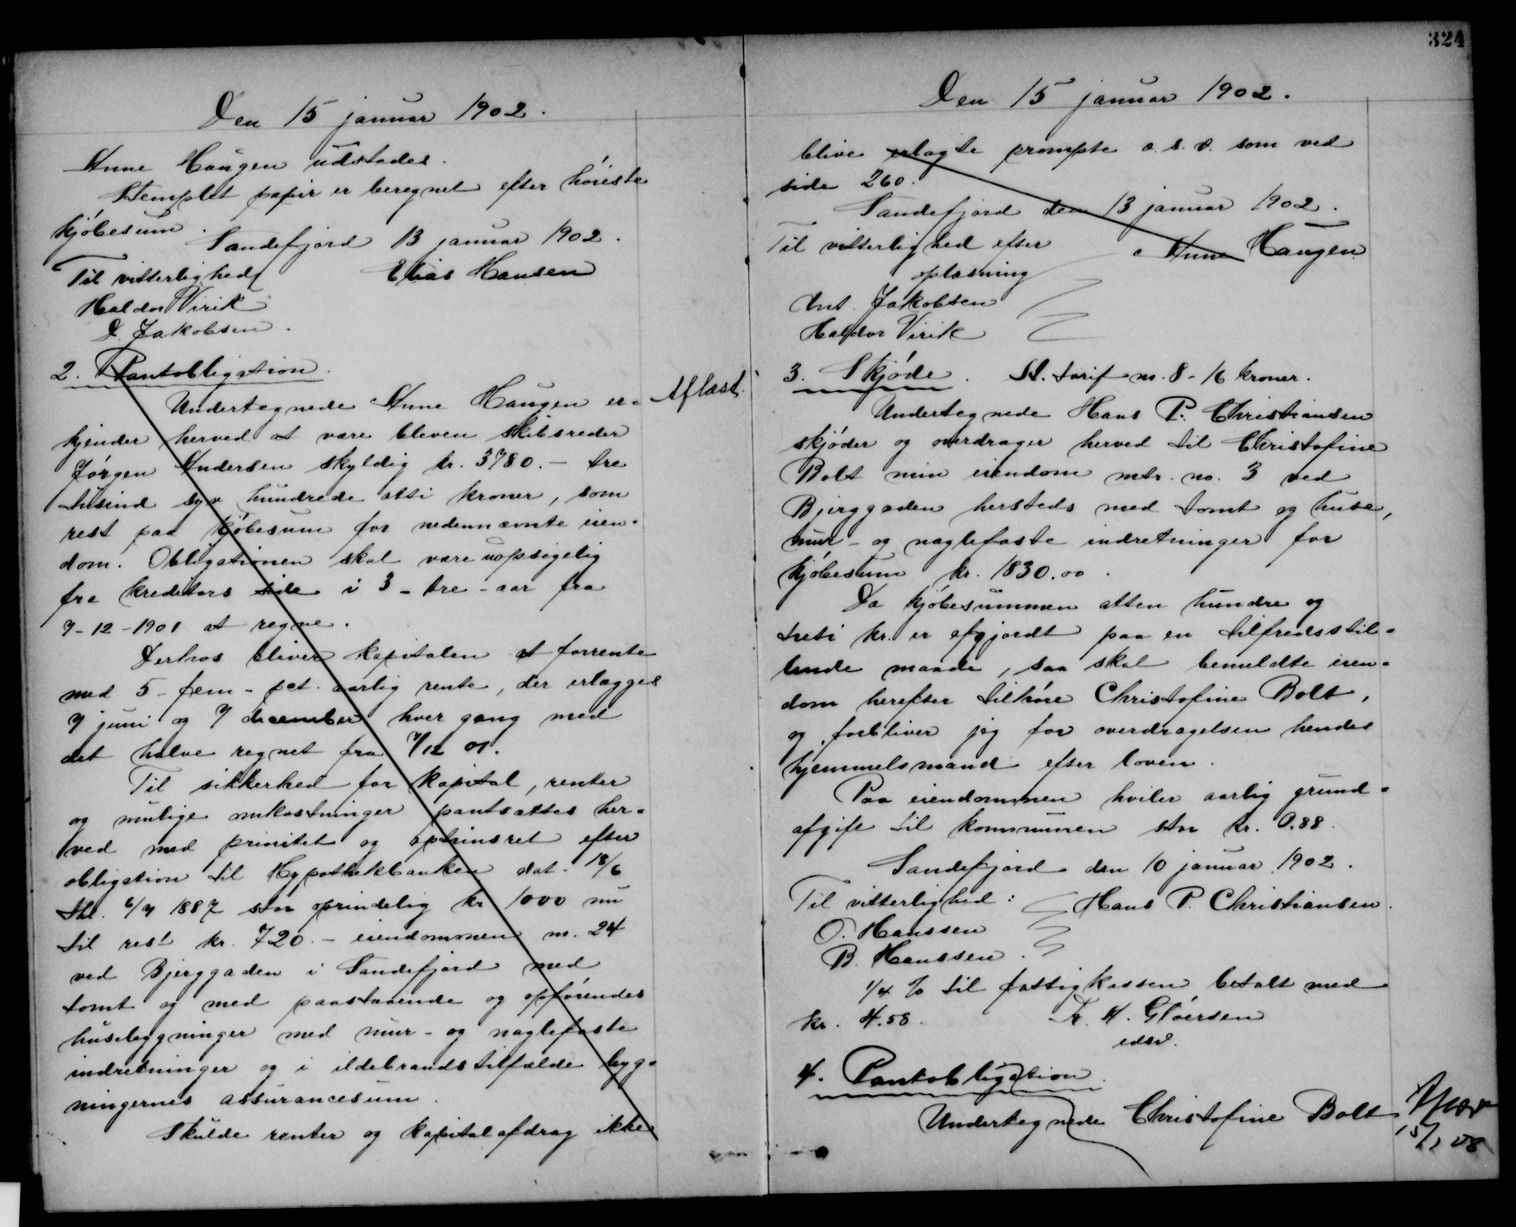 Den 15 januar 1902.
Anne Haugen udstedes.
Stemplet papir er beregnet efter høieste
kjøbesum.
Sandefjord 13 januar 1902.
Til vitterlighed
Elias Hansen
Haldor Virik
A. Jakobsen.
2. Pantobligation.
Aflæst.
Undertegnede Anne Haugen er-
kjender herved at være bleven skibsreder
Jørgen Andersen skyldig kr. 3780.- tre
tusind syv hundrede otti kroner, som
rest paa kjøbesum for nedennævnte eien-
dom. Obligationen skal være uopsigelig
fra kreditors side i 3 - tre - aar fra
7-12-1901 at regne.
Derhos bliver kapitalen at forrente
med 5 - fem - pct. aarlig rente, der erlægges
7 juni og 7 december hver gang med
det halve regnet fra 7/12 01.
Til sikkerhed for kapital, renter
og mulige omkostninger pantsættes her-
ved med prioritet og optrinsret efter
obligation til Hypothekbanken dat. 18/6
thl. 6/7 1887 stor oprindelig kr 1000 nu
til rest kr. 720.- eiendommen no. 24
ved Bjerggaden i Sandefjord med
tomt og med paastaaende og opførendes
husebygninger med mur- og naglefaste
indretninger og i ildebrandstilfælde byg-
ningernes assurancesum.
Skulde renter og kapitalafdrag ikke
324
Den 15 januar 1902.
blive erlagte prompte o.s.v. som ved
side 260.
Sandefjord den 13 januar 1902.
Til vitterlighed efter
Anne Haugen
oplæsning
Ant. Jakobsen
Haldor Virik
3. Skjøde. St. tarif no. 8 - 16 kroner.
Undertegnede Hans P. Christiansen
skjøder og overdrager herved til Christofine
Bolt min eiendom mtr. no. 3 ved
Bjerggaden hersteds med tomt og huse,
mur- og naglefaste indretninger for
kjøbesum kr. 1830.00.
Da kjøbesummen atten hundre og
treti kr. er afgjordt paa en tilfredsstil-
lende maade, saa skal bemeldte eien-
dom herefter tilhøre Christofine Bolt,
og forbliver jeg for overdragelsen hendes
hjemmelsmand efter loven.
Paa eiendommen hviler aarlig grund-
afgift til kommunen stor kr. 0.88.
Sandefjord den 10 januar 1902.
Til vitterlighed:
Hans P. Christiansen.
O. Hanssen
B. Hanssen.
1/4 % til fattigkassen betalt med
kr. 4.58.
Fr. A. Gløersen
edsv.
4. Pantobligation.
Undertegnede Christofine Bolt
Aflæst
15/1 08